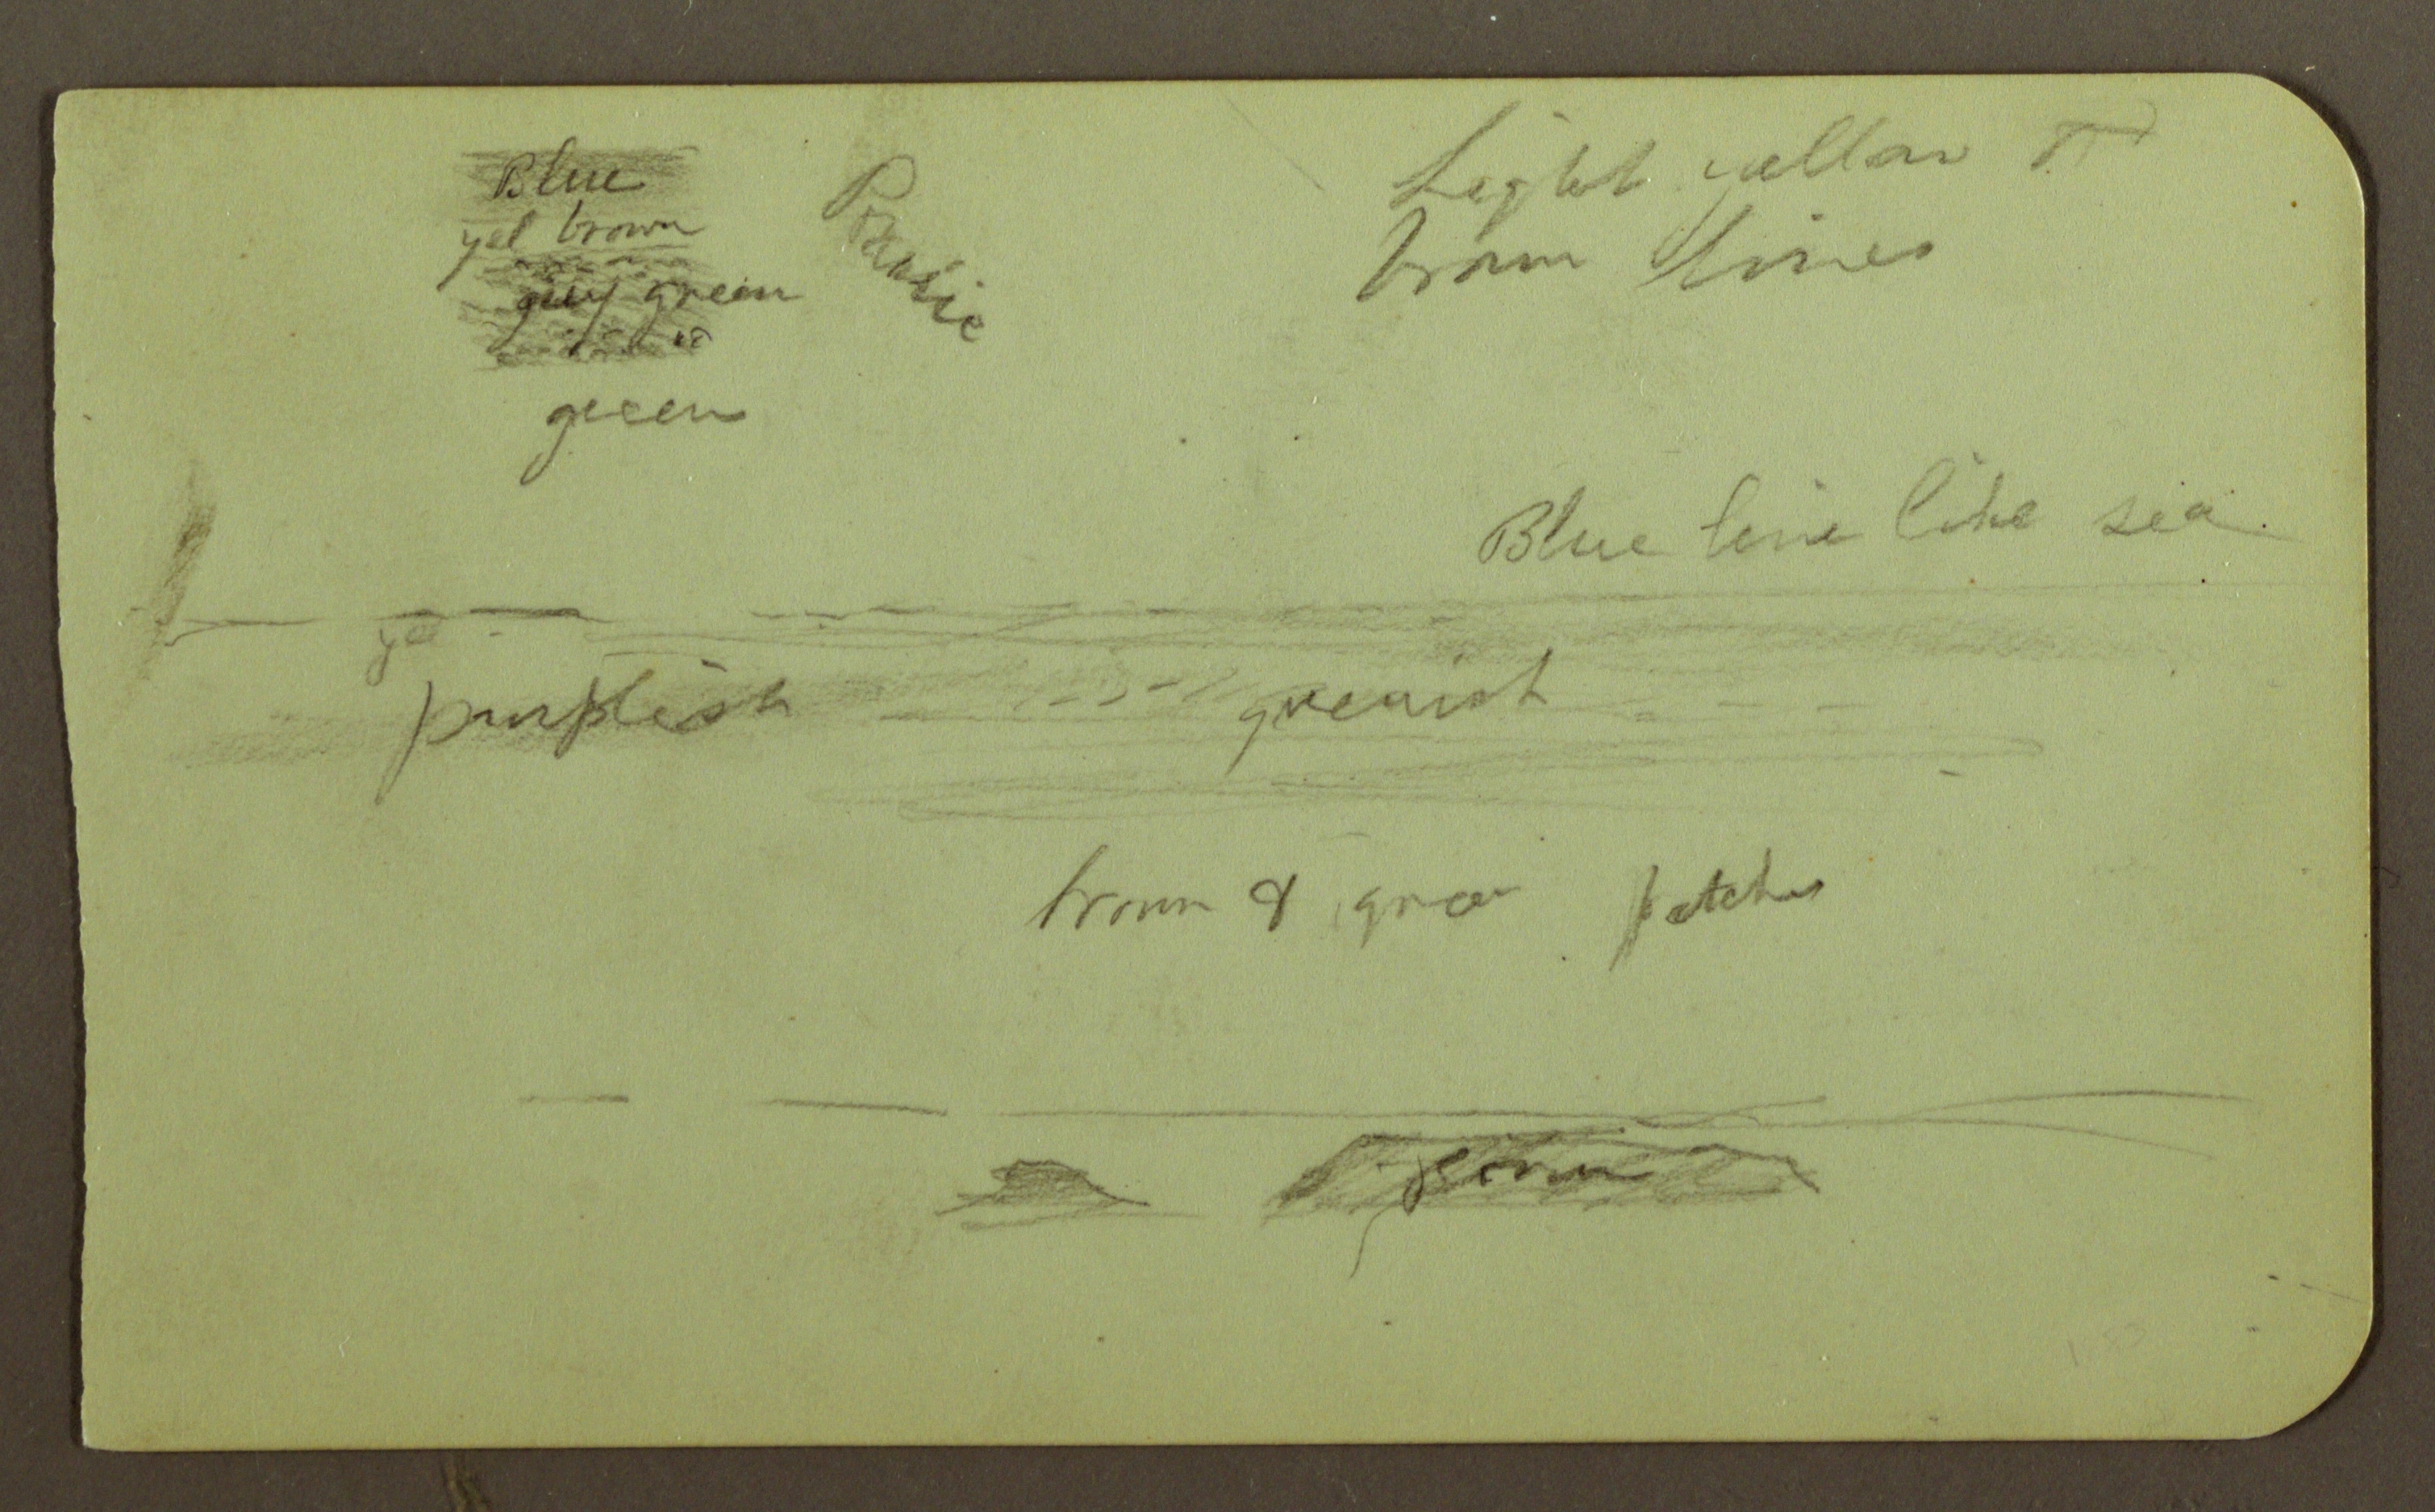 Blue
yel brown
grey green
green
Prairie
Light yellow &
brown lines
Blue line like sea
yel
purplish greenish
brown & green patches